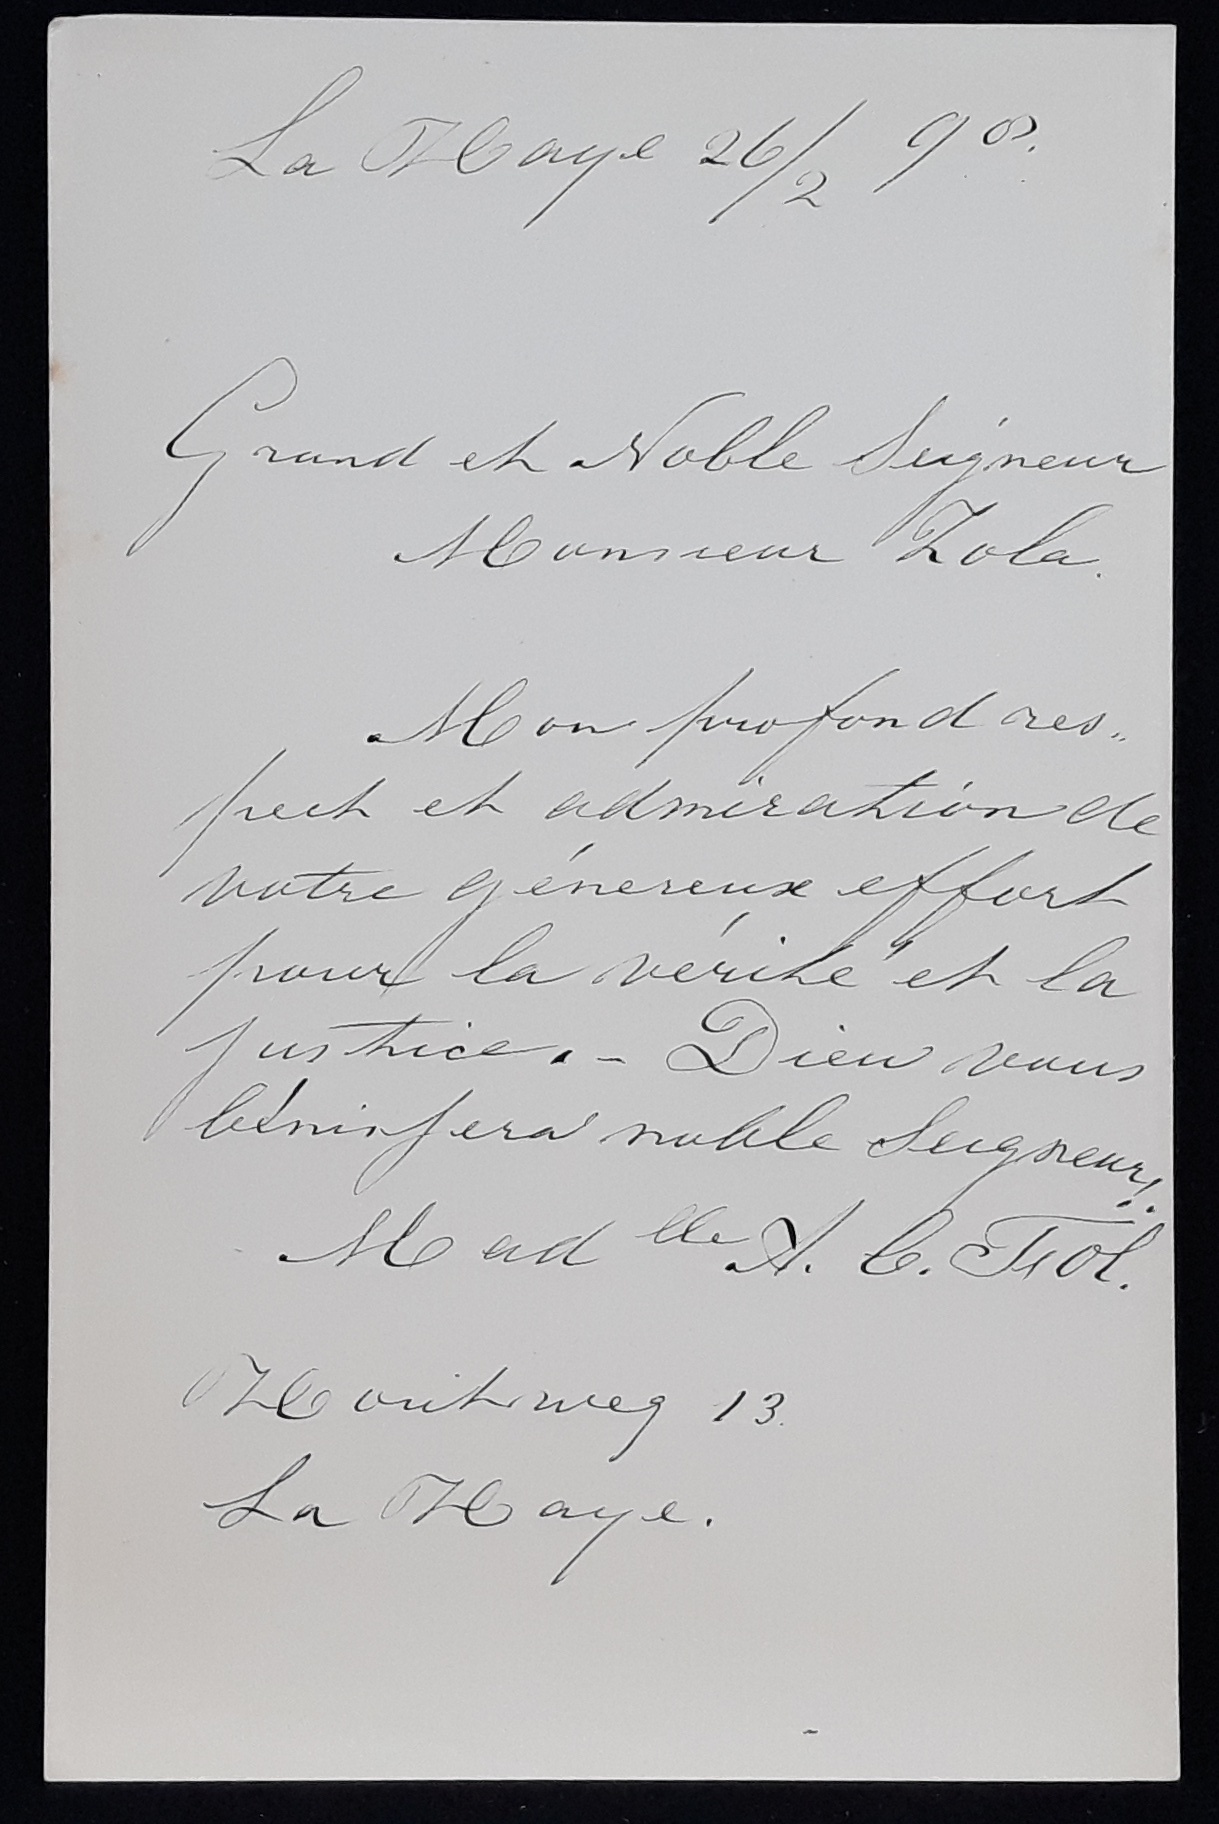 La Haye 26/2 98.
Grand et Noble Seigneur
Monsieur Zola.
Mon profond res„
pect et admiration de
votre génereux effort
pour la vérité et la
justice. – Dieu vous
bénissera noble Seigneur!
Mad lle A. C.
13.
La Haye.